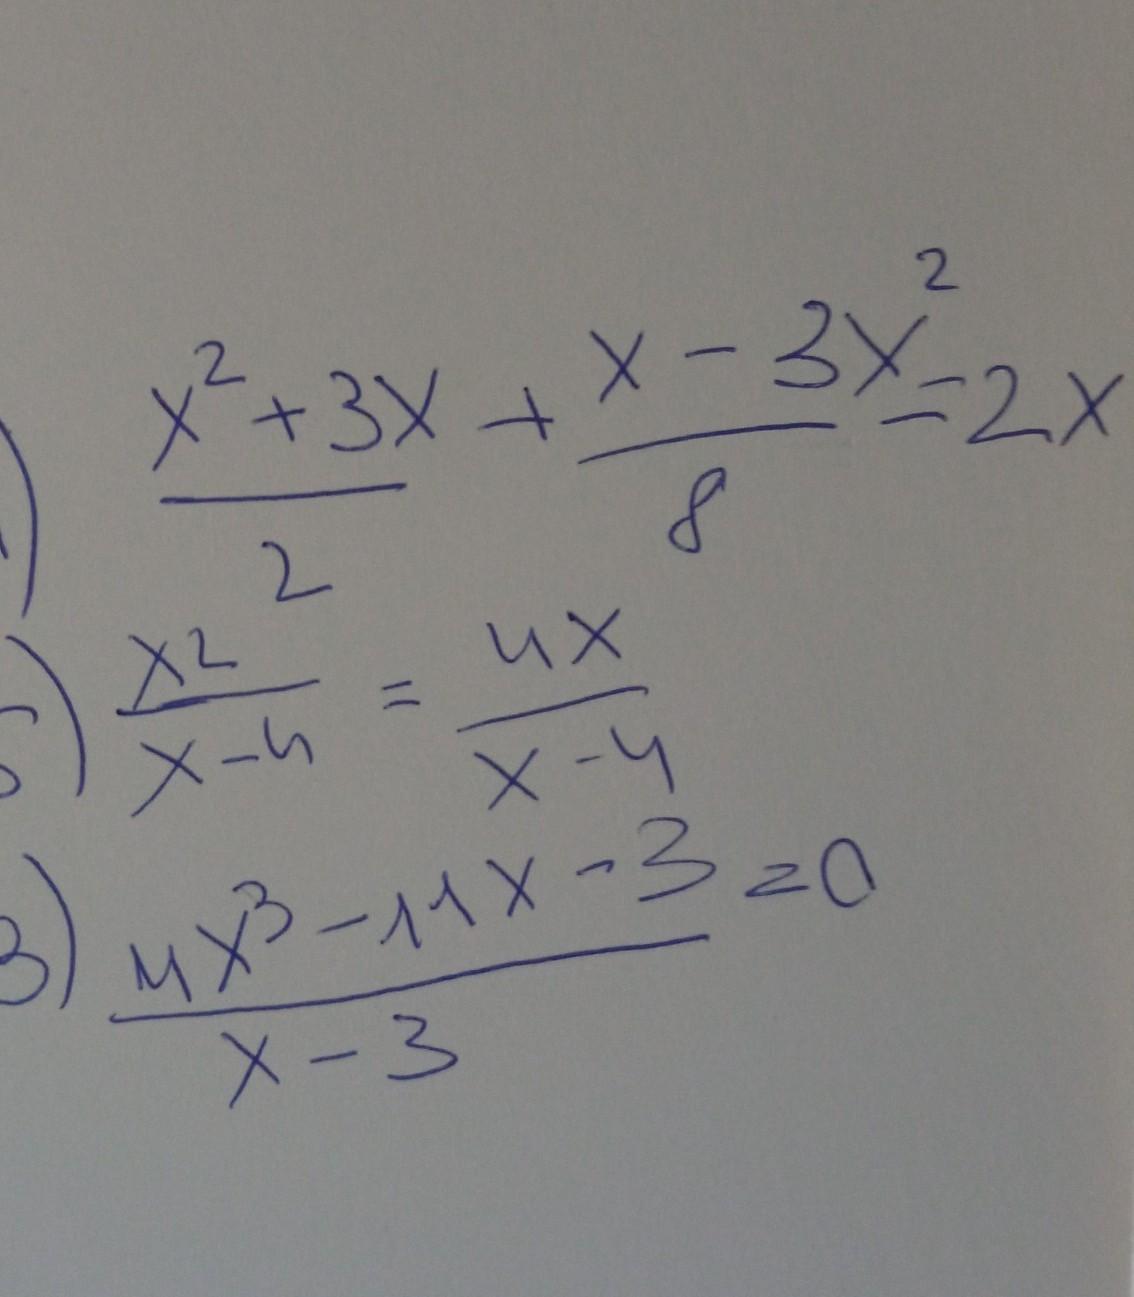 ) (x² + 3x)/2 + (x - 3x²)/8 = 2x
) x²/(x-4) = 4x/(x-4)
) (4x³ - 11x - 3)/(x - 3) = 0